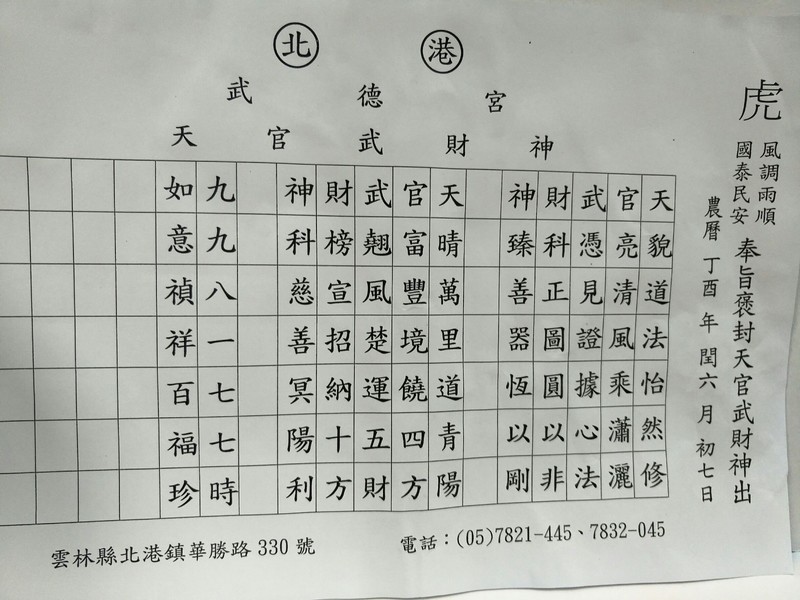 北港
武德宮
天官武財神
虎
風調雨順
國泰民安
奉旨褒封天官武財神出
農曆丁酉年閏六月初七日
天貌道法怡然修
官亮清風乘瀟灑
武憑見證據心法
財科正圖圓以非
神臻善器恆以剛
天晴萬里道青陽
官富豐境饒四方
武翹風楚運五財
財榜宣招納十方
神科慈善冥陽利
九九八一七七時
如意禎祥百福珍
電話：(05)7821-445、7832-045
雲林縣北港鎮華勝路330號